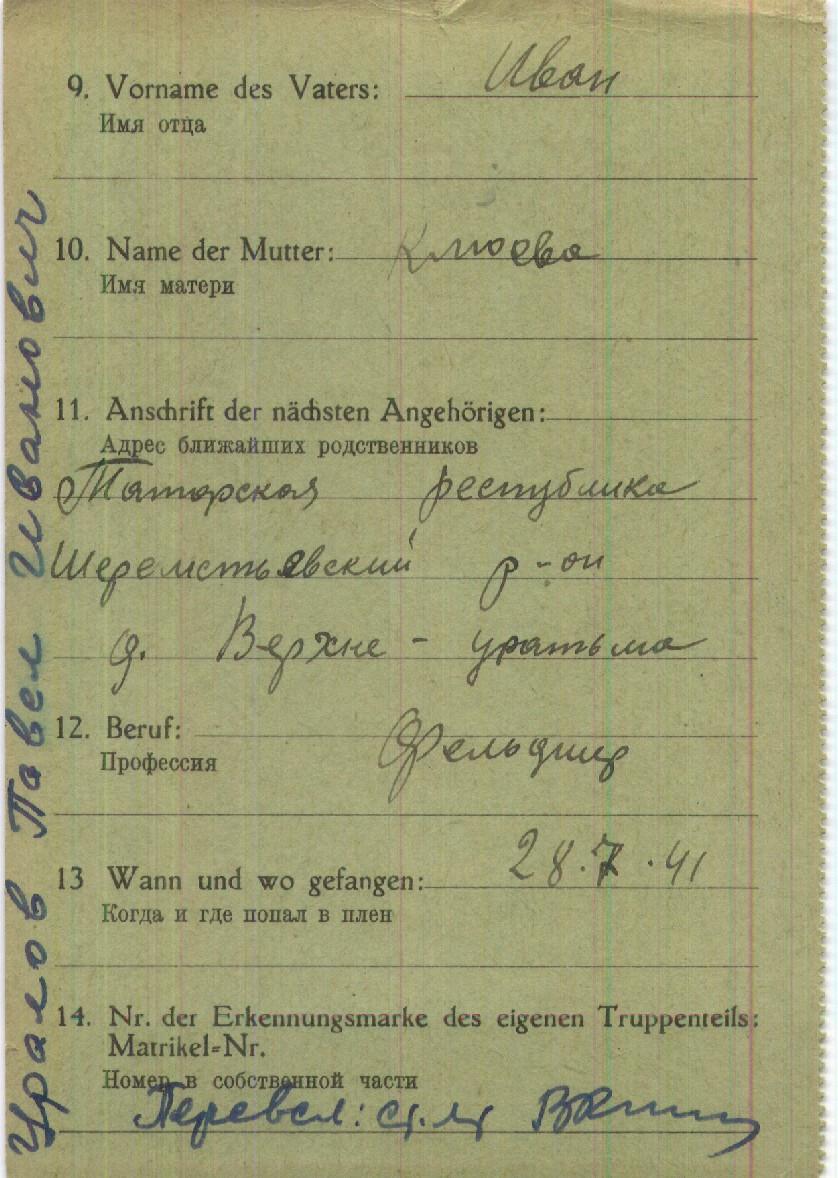 9. Vorname des Vaters: Иван
Имя отца
10. Name der Mutter: Клюева
Имя матери
11. Anschrift der nächsten Angehörigen:
Адрес ближайших родственников
Татарская республика
Шереметьевский р-он
д. Верхне - уратьма
12. Beruf: Фельдшер
Профессия
13 Wann und wo gefangen: 28.7.41
Когда и где попал в плен
14. Nr. der Erkennungsmarke des eigenen Truppenteils:
Matrikel=Nr.
Номер в собственной части
Перевел: ст. лт
Уралов Павел Иванович